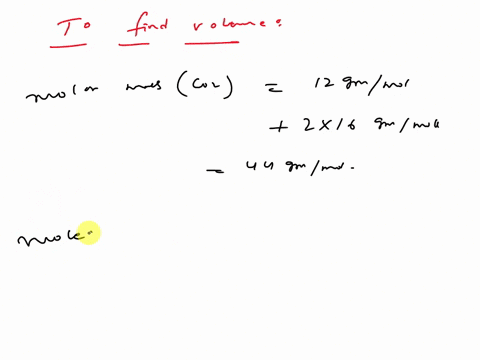 To find volume:
molar mass (CO2) = 12 gm/mol
+ 2×16 gm/mol
= 44 gm/mol.
moles